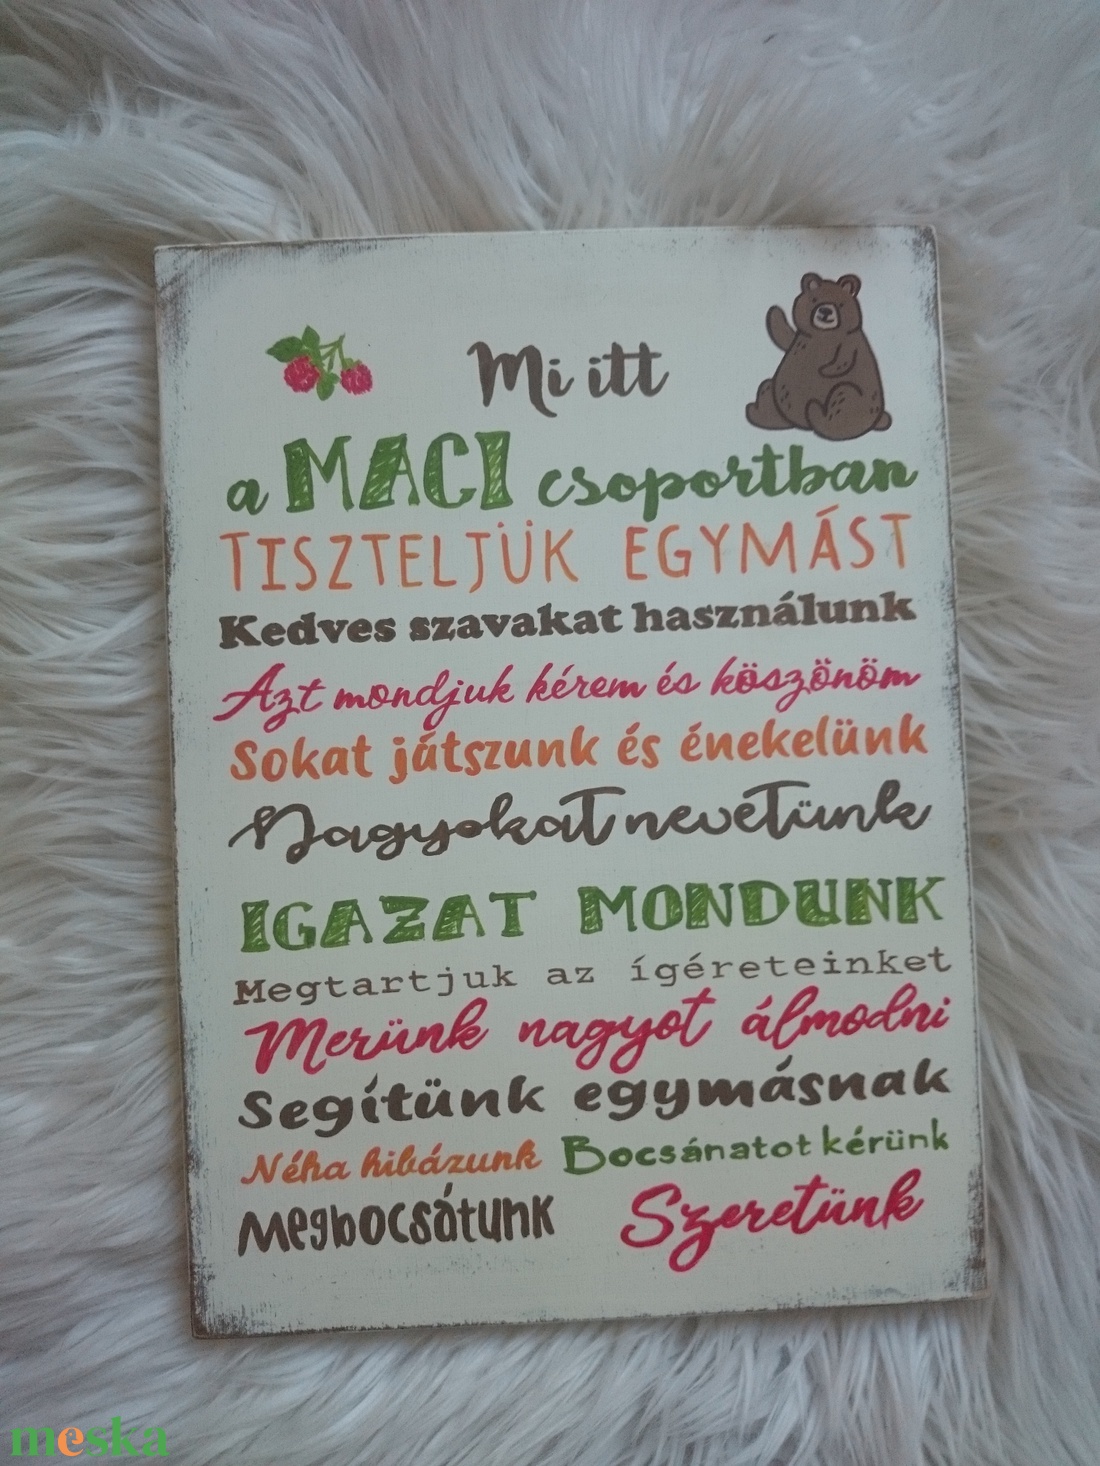 Mi itt
a MACI csoportban
TISZTELJÜK EGYMÁST
Kedves szavakat használunk
Azt mondjuk kérem és köszönöm
Sokat játszunk és énekelünk
Nagyokat nevetünk
IGAZAT MONDUNK
Megtartjuk az ígéreteinket
Merünk nagyot álmodni
Segítünk egymásnak
Néha hibázunk Bocsánatot kérünk
Megbocsátunk Szeretünk
meska